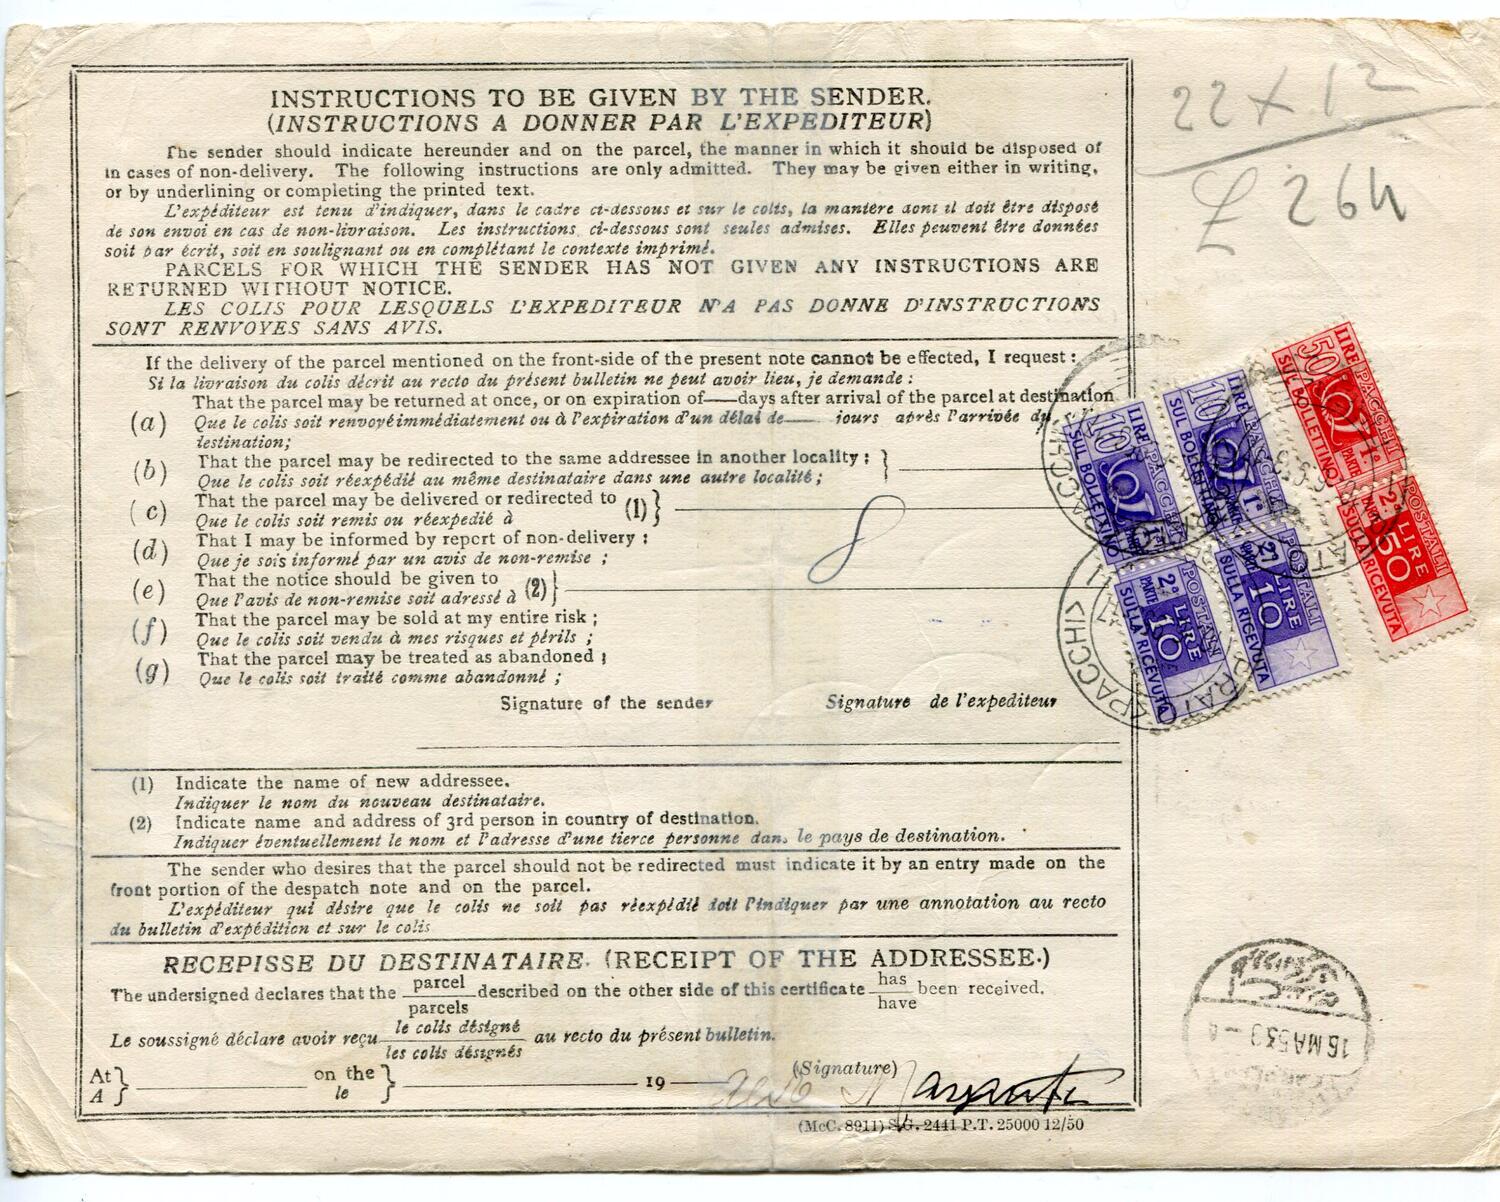 INSTRUCTIONS TO BE GIVEN BY THE SENDER.
(INSTRUCTIONS A DONNER PAR L'EXPEDITEUR)
The sender should indicate hereunder and on the parcel, the manner in which it should be disposed of
in cases of non-delivery. The following instructions are only admitted. They may be given either in writing,
or by underlining or completing the printed text.
L'expéditeur est tenu d'indiquer, dans le cadre ci-dessous et sur le colis, la manière dont il doit être disposé
de son envoi en cas de non-livraison. Les instructions ci-dessous sont seules admises. Elles peuvent être données
soit par écrit, soit en soulignant ou en complétant le contexte imprimé.
PARCELS FOR WHICH THE SENDER HAS NOT GIVEN ANY INSTRUCTIONS ARE
RETURNED WITHOUT NOTICE.
LES COLIS POUR LESQUELS L'EXPEDITEUR N'A PAS DONNE D'INSTRUCTIONS
SONT RENVOYES SANS AVIS.
If the delivery of the parcel mentioned on the front-side of the present note cannot be effected, I request:
Si la livraison du colis décrit au recto du présent bulletin ne peut avoir lieu, je demande:
That the parcel may be returned at once, or on expiration of——days after arrival of the parcel at destination
(a) Que le colis soit renvoyé immédiatement ou à l'expiration d'un délai de—— jours après l'arrivée du
destination;
(b) That the parcel may be redirected to the same addressee in another locality; }
Que le colis soit réexpédié au même destinataire dans une autre localité;
(c) That the parcel may be delivered or redirected to (1) }
Que le colis soit remis ou réexpedié à
(d) That I may be informed by report of non-delivery:
Que je sois informé par un avis de non-remise;
(e) That the notice should be given to (2) }
Que l'avis de non-remise soit adressé à
(f) That the parcel may be sold at my entire risk;
Que le colis soit vendu à mes risques et périls;
(g) That the parcel may be treated as abandoned;
Que le colis soit traité comme abandonné;
Signature of the sender Signature de l'expéditeur
(1) Indicate the name of new addressee.
Indiquer le nom du nouveau destinataire.
(2) Indicate name and address of 3rd person in country of destination.
Indiquer éventuellement le nom et l'adresse d'une tierce personne dans le pays de destination.
The sender who desires that the parcel should not be redirected must indicate it by an entry made on the
front portion of the despatch note and on the parcel.
L'expéditeur qui désire que le colis ne soit pas réexpédié doit l'indiquer par une annotation au recto
du bulletin d'expédition et sur le colis
RECEPISSE DU DESTINATAIRE. (RECEIPT OF THE ADDRESSEE.)
The undersigned declares that the parcel described on the other side of this certificate has been received.
parcels have
Le soussigné déclare avoir reçu le colis désigné au recto du présent bulletin.
les colis désignés
At } on the } 19 (Signature)
A le
(McC. 8911) S.G. 2441 P.T. 25000 12/50
22 x 12
£ 264
LIRE 10 PACCHI
SUL BOLLETTINO
PARTE 1ª
POSTALI
2ª PARTE LIRE 10
SULLA RICEVUTA
LIRE 10 PACCHI
SUL BOLLETTINO
PARTE 1ª
POSTALI
2ª PARTE LIRE 10
SULLA RICEVUTA
LIRE 50 PACCHI
SUL BOLLETTINO
PARTE 1ª
POSTALI
2ª PARTE LIRE 50
SULLA RICEVUTA
PACCHI
PACCHI
16 MA 53